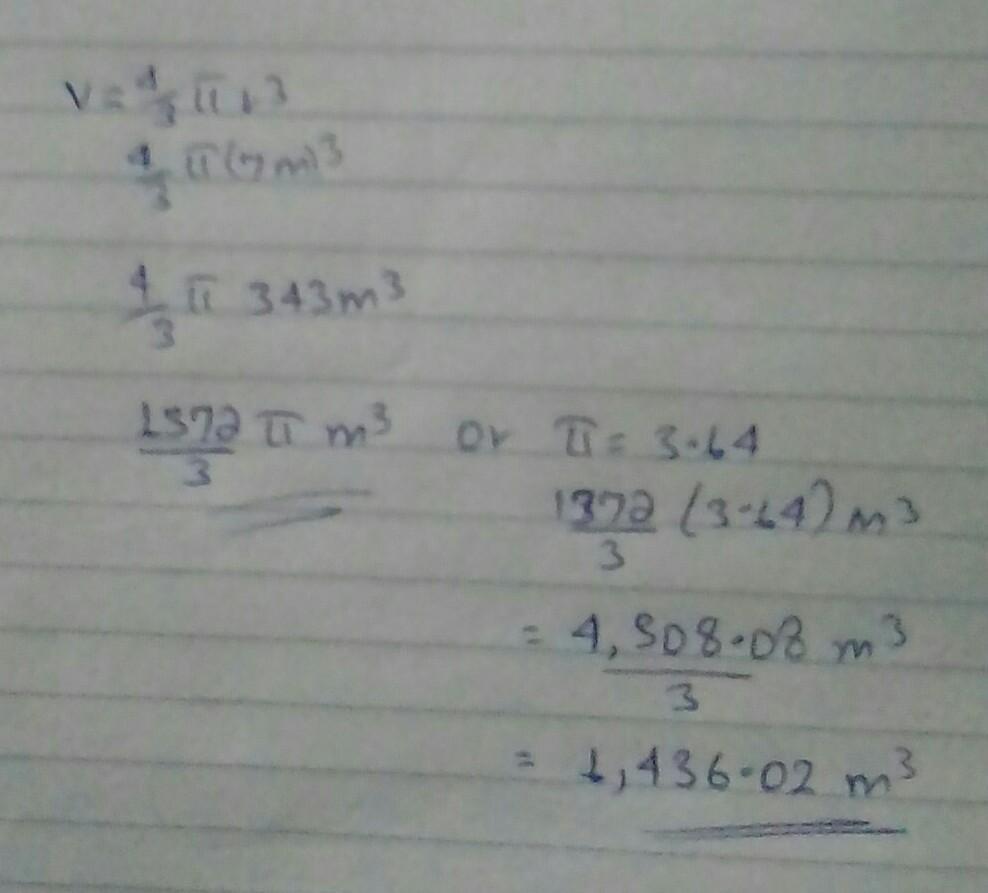 V = 4/3 π r³
4/3 π (7m)³
4/3 π 343m³
1372/3 π m³ or π = 3.14
1372/3 (3.14) m³
= 4,308.08/3 m³
= 1,436.02 m³